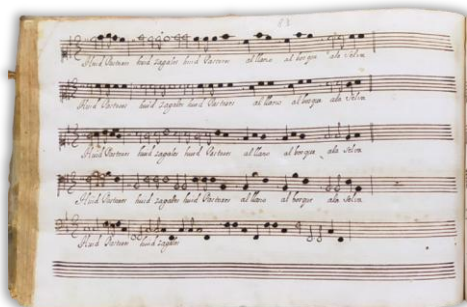 Huid Pastores huid zagales huid Pastores al llano al bosque ala selva
Huid Pastores huid zagales huid Pastores al llano al bosque ala selva
Huid Pastores huid zagales huid Pastores al llano al bosque ala selva
Huid Pastores huid zagales huid Pastores al llano al bosque ala selva
Huid Pastores huid zagales